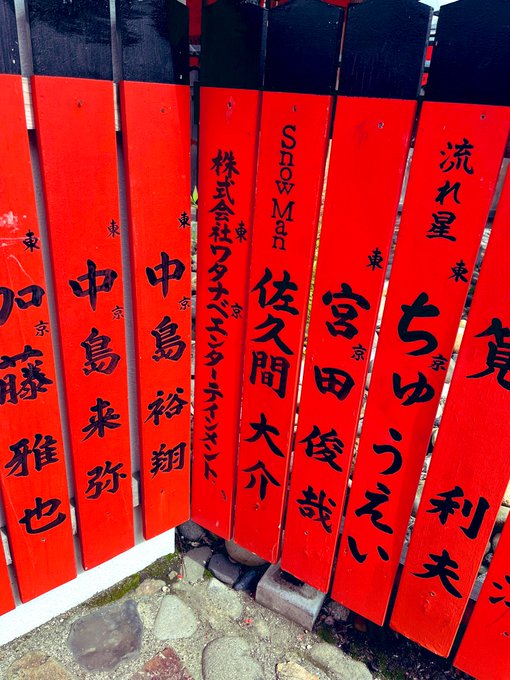 筧 利夫
流れ星 東京 ちゅうえい
東京 宮田 俊哉
Snow Man 佐久間 大介
東京 株式会社ワタナベエンターテインメント
東京 中島 裕翔
東京 中島 来弥
東京 加藤 雅也